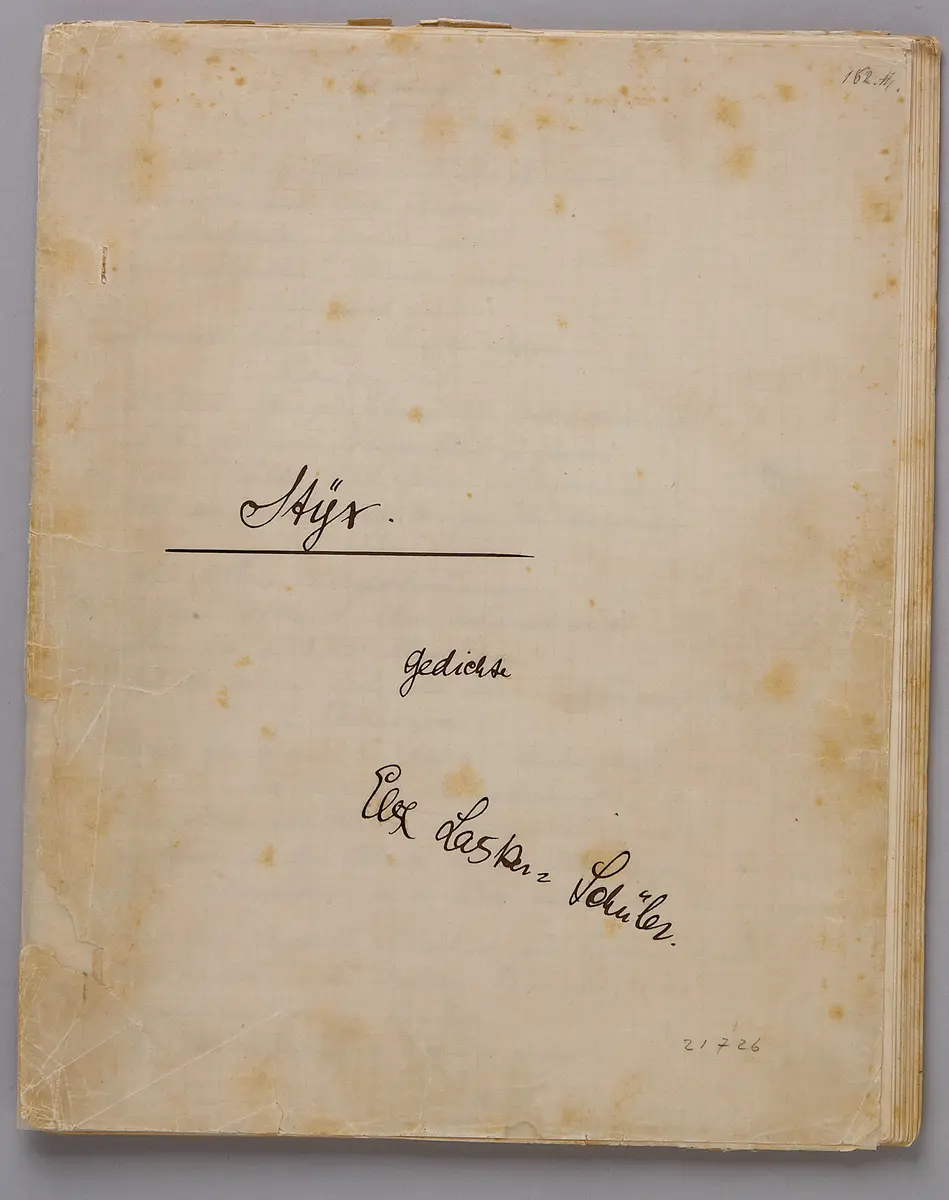 Stÿx.
Gedichte
Else Lasker=Schüler.
21726